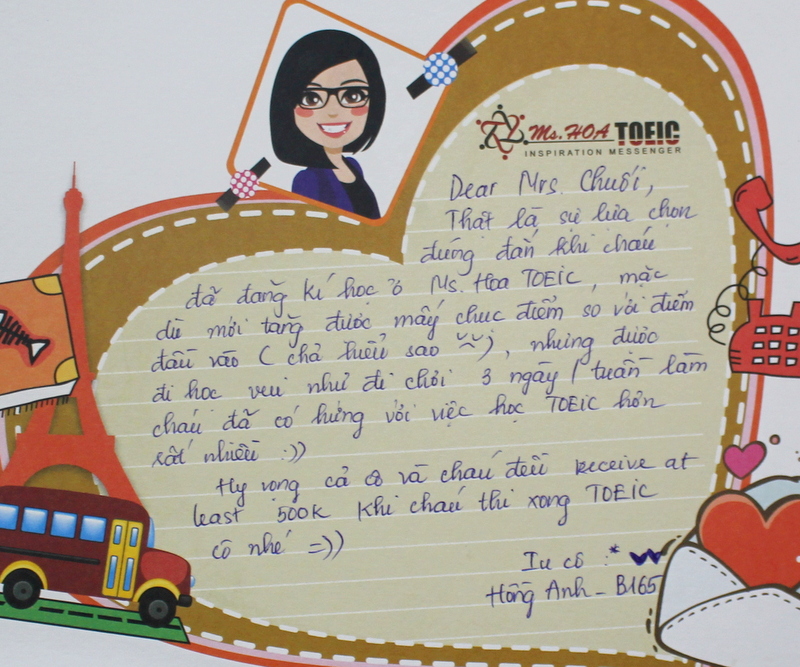 Ms. HOA TOEIC
INSPIRATION MESSENGER
Dear Mrs. Chuối,
Thật là sự lựa chọn
đúng đắn khi cháu
đã đăng kí học ở Ms. Hoa TOEIC, mặc
dù mới tăng được mấy chục điểm so với điểm
đầu vào ( chả hiểu sao ), nhưng được
đi học vui như đi chơi 3 ngày / tuần làm
cháu đã có hứng với việc học TOEIC hơn
rất nhiều :))
Hy vọng cả cô và cháu đều receive at
least 500k khi cháu thi xong TOEIC
cô nhé =))
Iu cô :*
Hồng Anh - B165